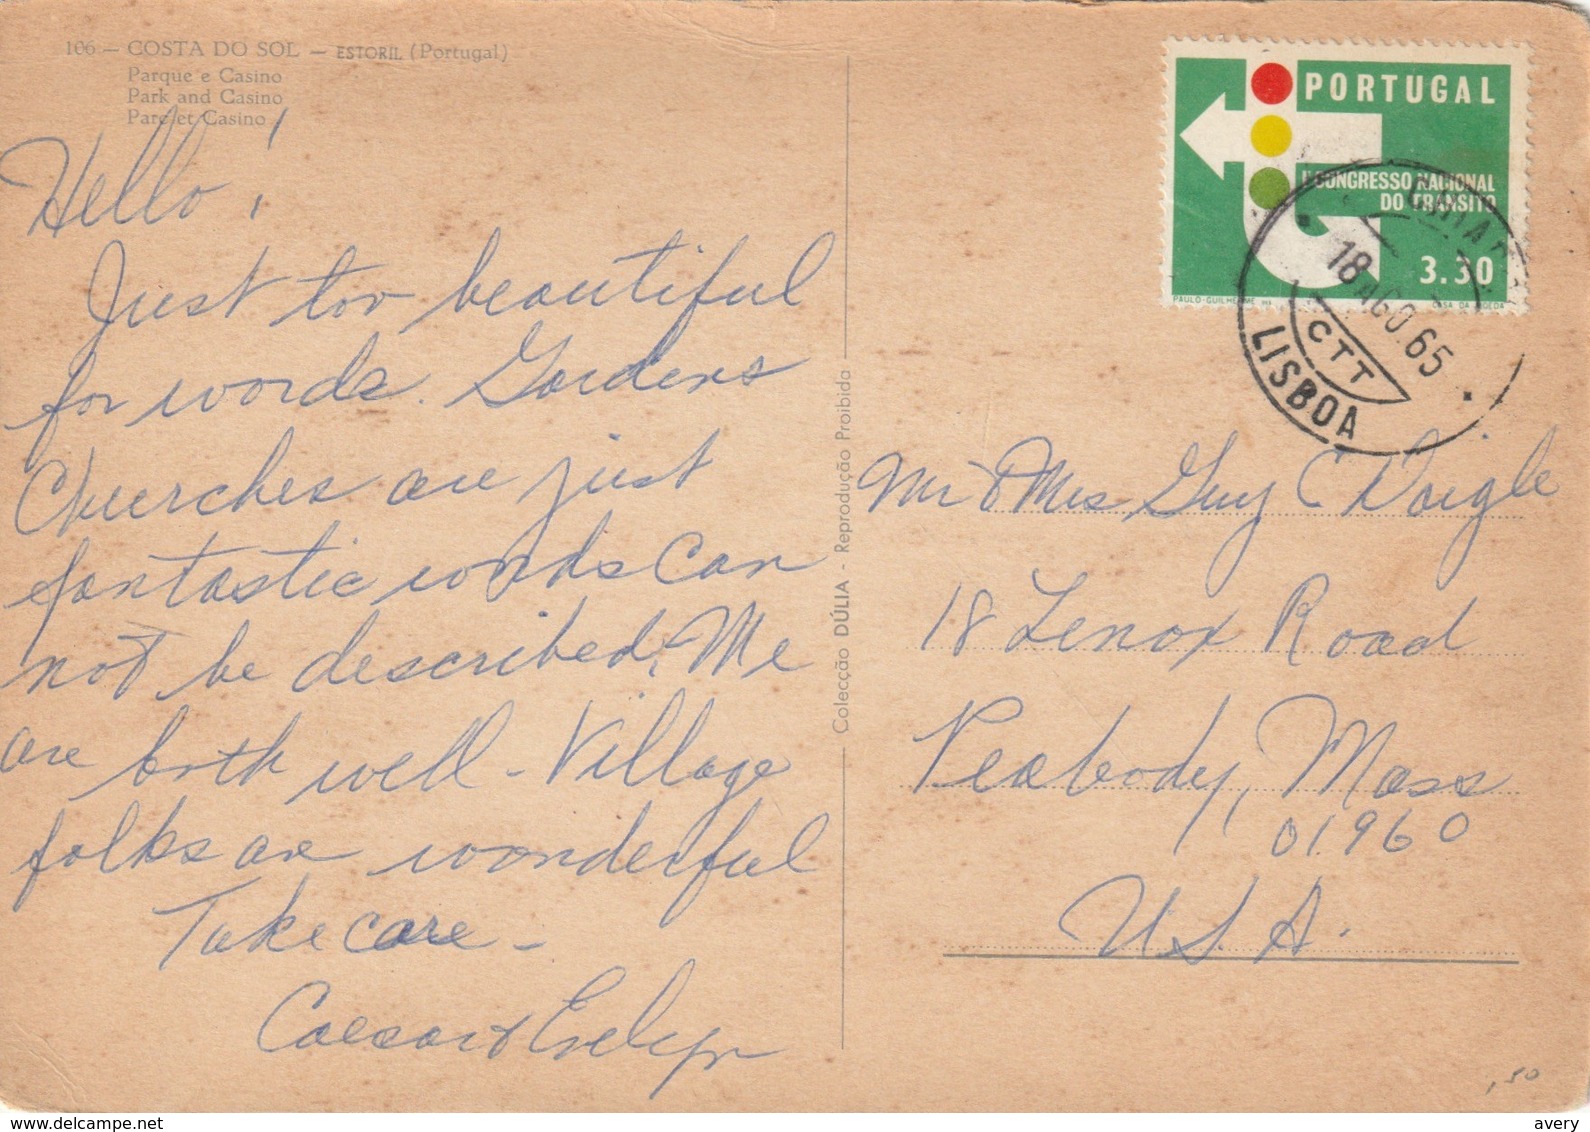 106 — COSTA DO SOL — ESTORIL (Portugal)
Parque e Casino
Park and Casino
Parc et Casino
Hello!
Just too beautiful
for words. Gardens
Churches are just
fantastic words can
not be described. We
are both well - Village
folks are wonderful
Take care -
Caesar & Evelyn
Colecção DÚLIA - Reprodução Proibida
PORTUGAL
II CONGRESSO NACIONAL
DO TRÂNSITO
3.30
PAULO-GUILHERME
CASA DA MOEDA
18 AGO. 65
CTT
LISBOA
Mr & Mrs Guy C Daigle
18 Lenox Road
Peabody, Mass
01960
U.S.A.
.50
delcampe.net
avery